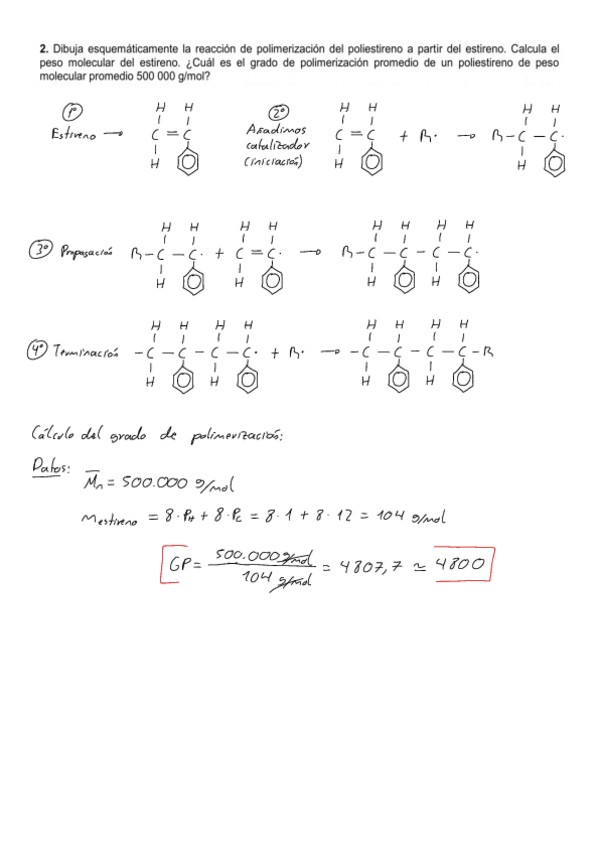 2. Dibuja esquemáticamente la reacción de polimerización del poliestireno a partir del estireno. Calcula el
peso molecular del estireno. ¿Cuál es el grado de polimerización promedio de un poliestireno de peso
molecular promedio 500 000 g/mol?
1º
Estireno →
H H
C = C
H
2º
Añadimos
catalizador
(iniciación)
H H
C = C
H
+ R· →
H H
R – C – C·
H
3º Propagación
H H
R – C – C·
H
+
H H
C = C·
H
→
H H H H
R – C – C – C – C·
H H
4º Terminación
H H H H
– C – C – C – C·
H H
+ R· →
H H H H
– C – C – C – C – R
H H
Cálculo del grado de polimerización:
Datos:
M̅n = 500.000 g/mol
Mestireno = 8·PH + 8·PC = 8·1 + 8·12 = 104 g/mol
GP = 500.000 g/mol / 104 g/mol = 4807,7 ≃ 4800